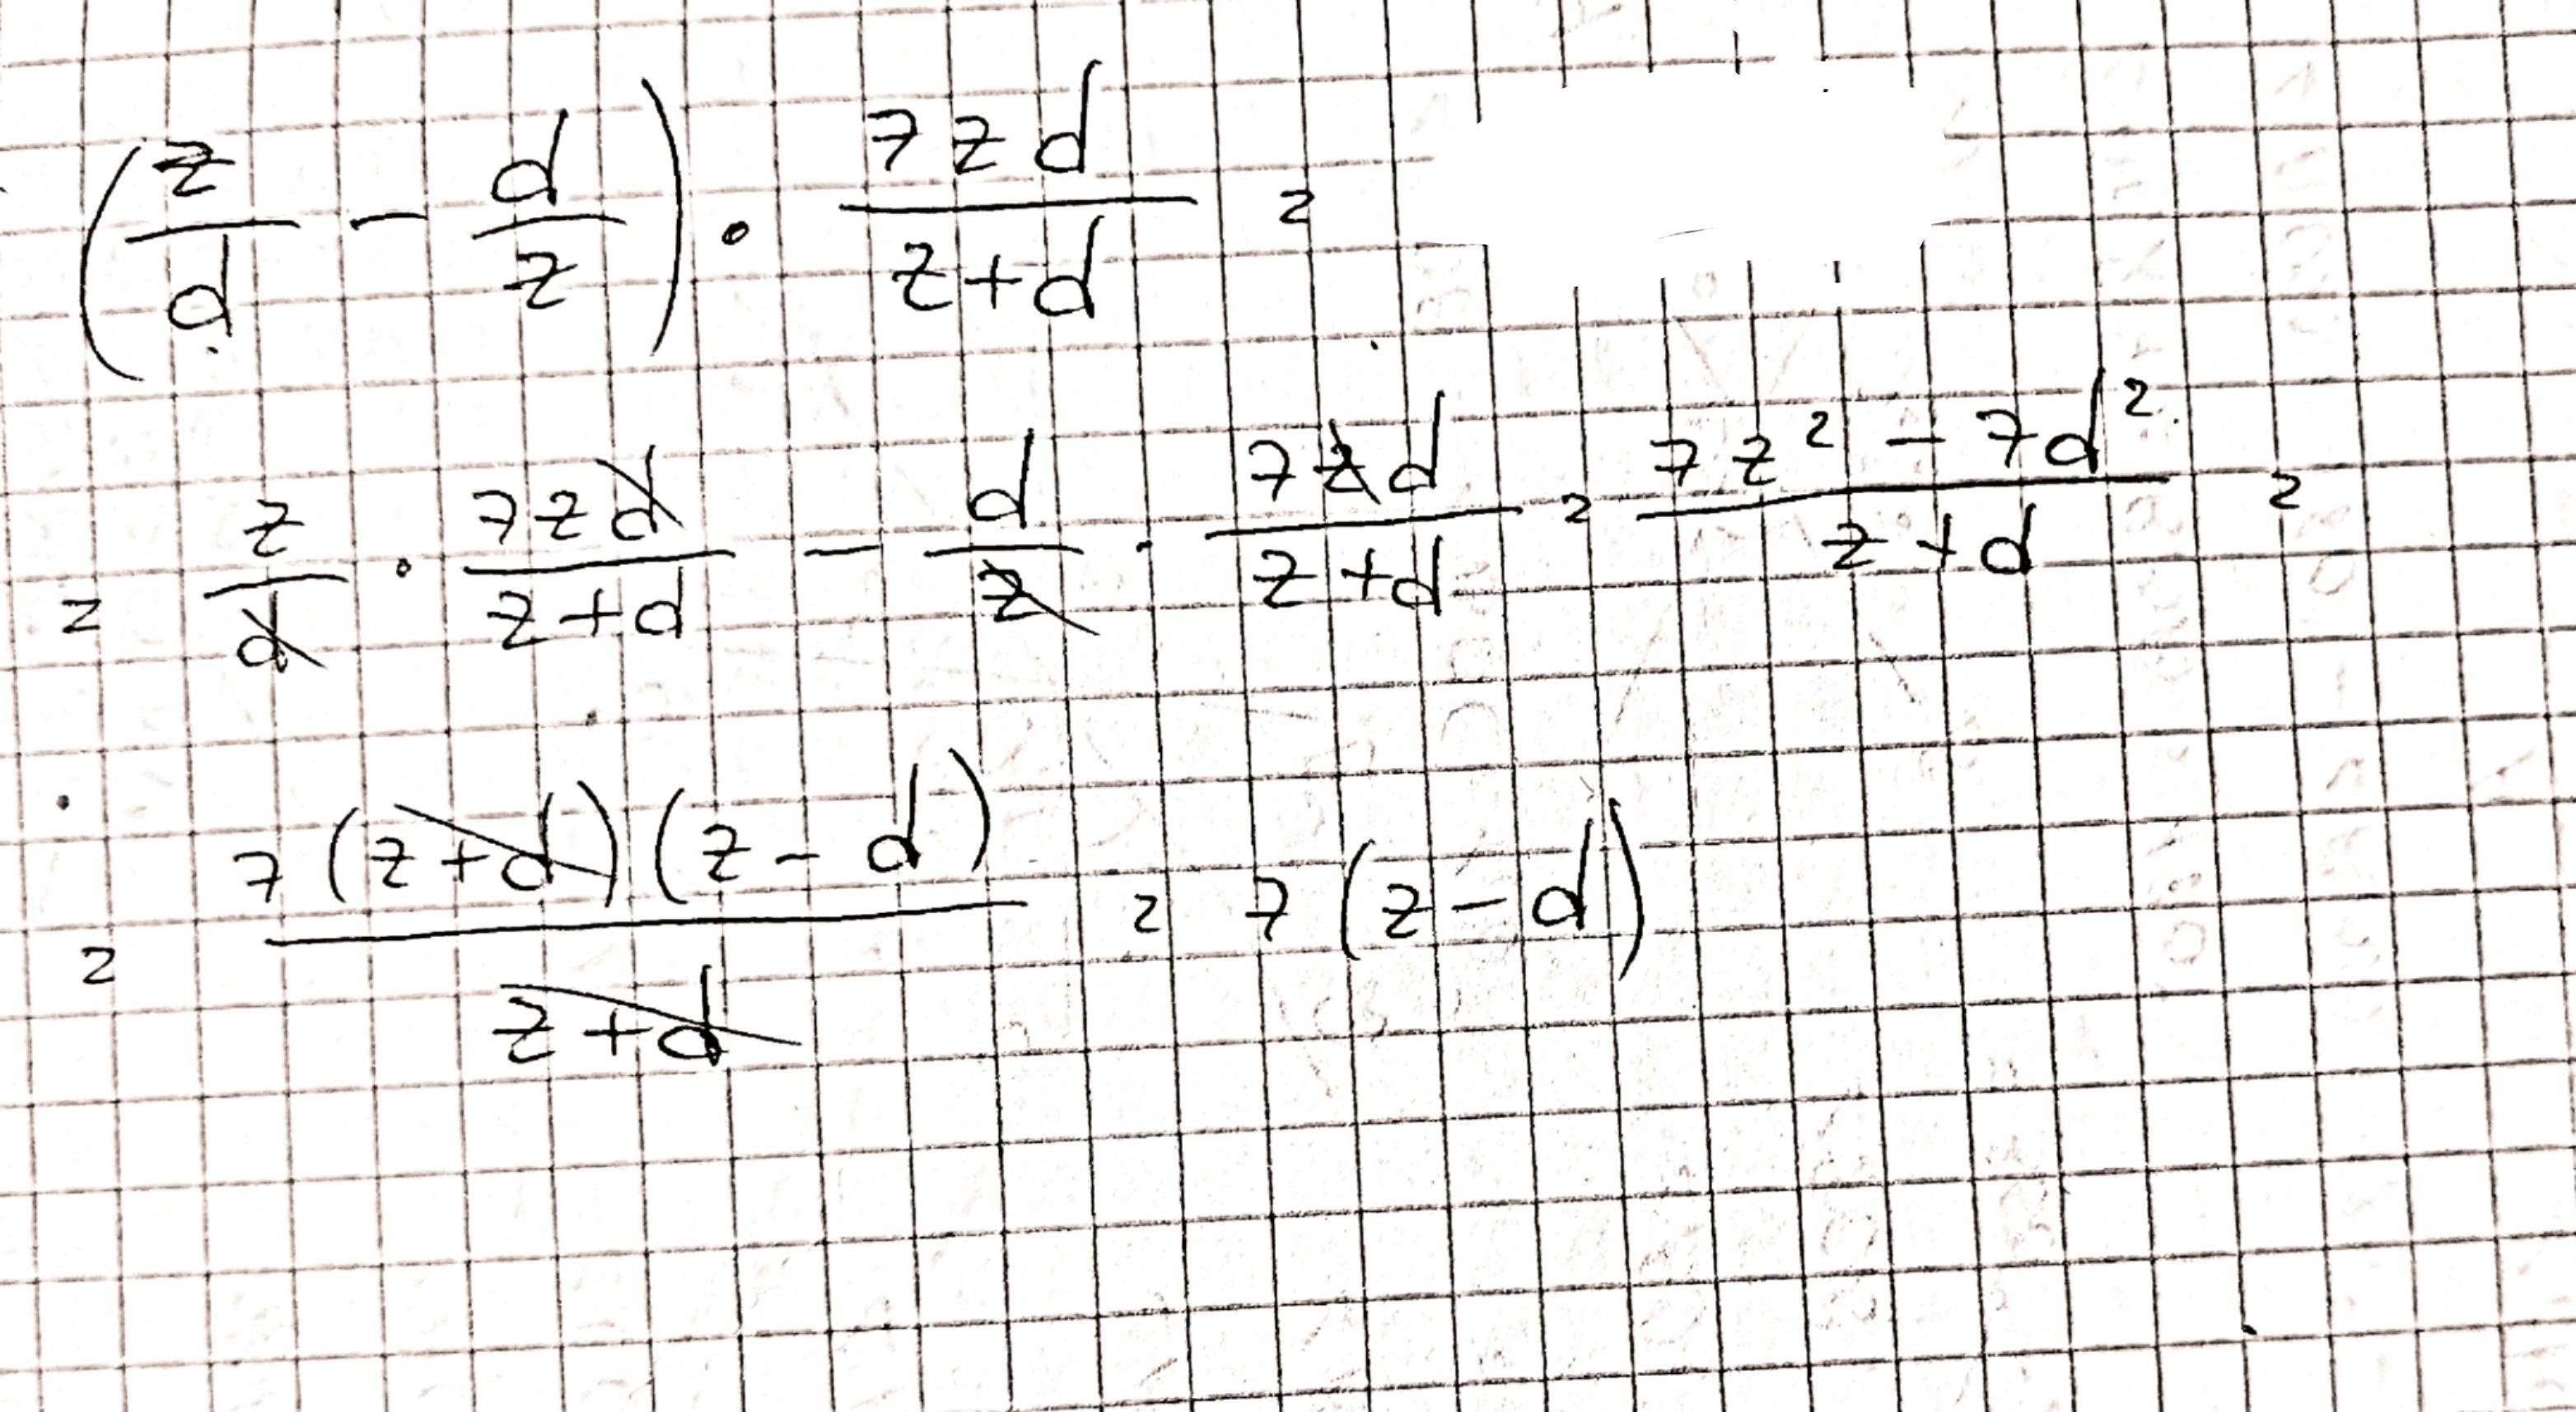 (z/d - d/z) · 7zd/(z+d) =
= z/d · 7zd/(z+d) - d/z · 7zd/(z+d) = (7z² - 7d²)/(z+d) =
= 7(z+d)(z-d)/(z+d) = 7(z-d)